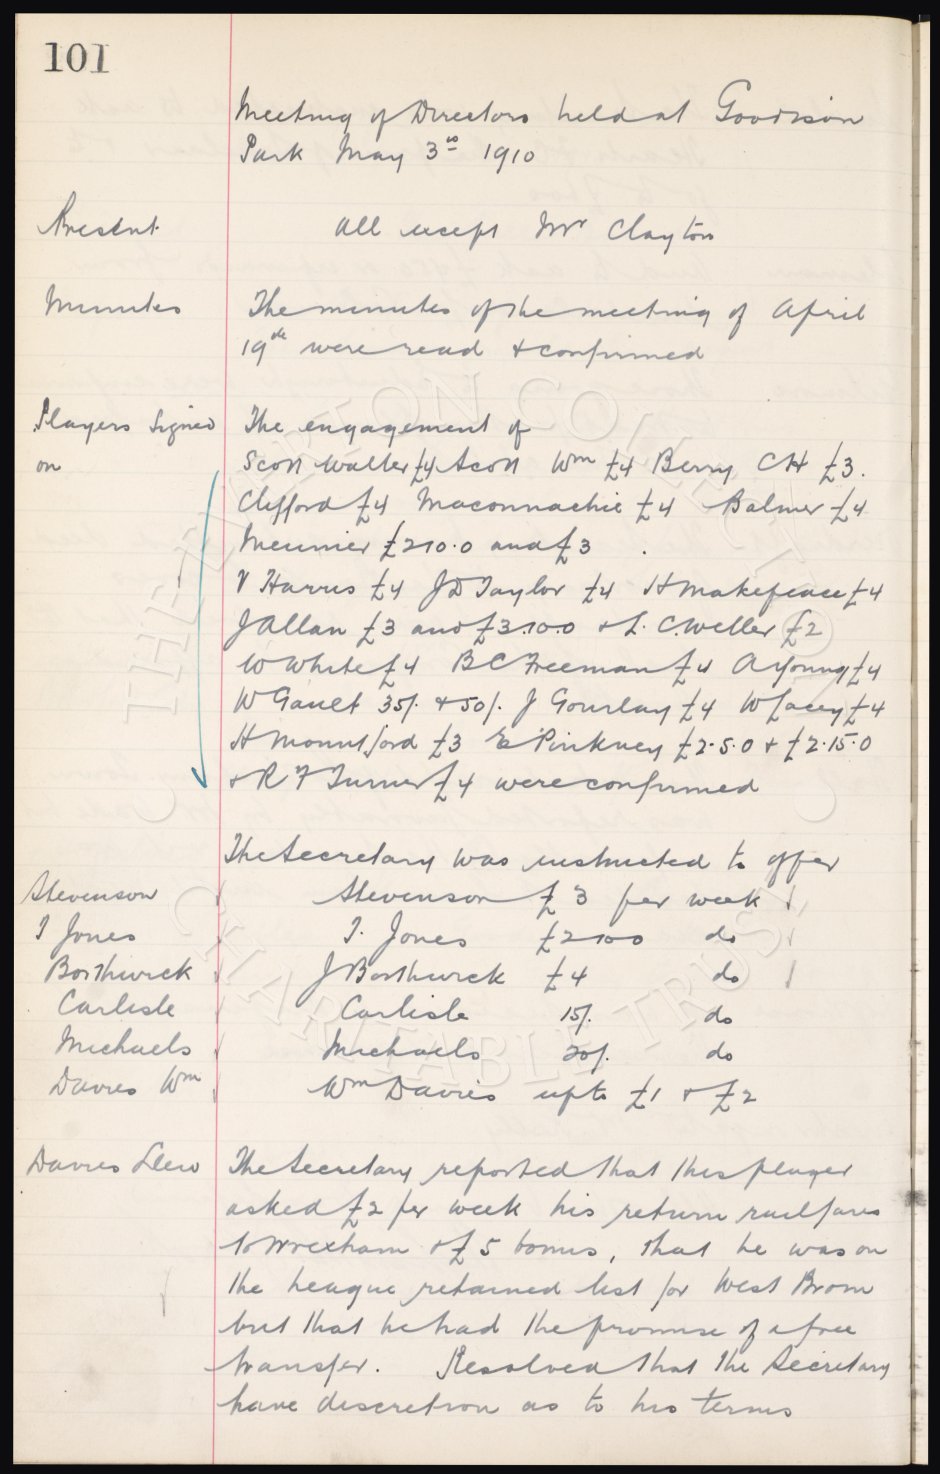 101
Meeting of Directors held at Goodison
Park May 3rd 1910
Present. All except Mr Clayton
Minutes The minutes of the meeting of April
19th were read & confirmed
Players Signed The engagement of
on Scott Walter £4 Scott Wm £4 Berry CH £3.
Clifford £4 Maconnachie £4 Balmer £4
Meunier £2.10.0 and £3
V Harris £4 J D Taylor £4 H Makepeace £4
J Allan £3 and £3.10.0 & L. C. Weller £2
W White £4 B C Freeman £4 A Young £4
W Gault 35/. & 50/. J Gourlay £4 W Lacey £4
H Mountford £3 E Pinkney £2.5.0 & £2.15.0
& R F Turner £4 were confirmed
The Secretary was instructed to offer
Stevenson Stevenson £3 per week
T Jones T. Jones £2 10 0 do
Borthwick J Borthwick £4 do
Carlisle Carlisle 15/. do
Michaels Michaels 20/. do
Davies Wm Wm Davies up to £1 & £2
Davies Llew The Secretary reported that this player
asked £2 per week his return rail fares
to Wrexham & £5 bonus, that he was on
the League retained list for West Brom
but that he had the promise of a free
transfer. Resolved that the Secretary
have discretion as to his terms
THE EVERTON COLLECTION
CHARITABLE TRUST